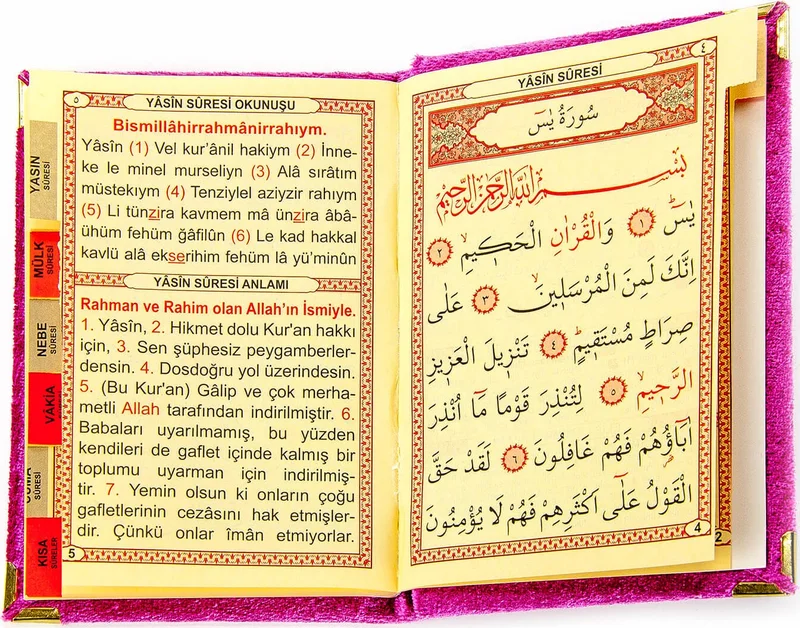 YÂSÎN SÛRESİ
٤
سُورَةُ يٰسٓ
بِسْمِ اللّٰهِ الرَّحْمٰنِ الرَّحِيمِ
يٰسٓ ۚ ﴿١﴾ وَالْقُرْاٰنِ الْحَكِيمِۙ ﴿٢﴾
اِنَّكَ لَمِنَ الْمُرْسَلِينَۙ ﴿٣﴾ عَلٰى
صِرَاطٍ مُسْتَقِيمٍۜ ﴿٤﴾ تَنْزِيلَ الْعَزِيزِ
الرَّحِيمِۙ ﴿٥﴾ لِتُنْذِرَ قَوْمًا مَٓا اُنْذِرَ
اٰبَٓاؤُ۬هُمْ فَهُمْ غَافِلُونَ ﴿٦﴾ لَقَدْ حَقَّ
الْقَوْلُ عَلٰٓى اَكْثَرِهِمْ فَهُمْ لَا يُؤْمِنُونَ
4
2
٥
YÂSÎN SÛRESİ OKUNUŞU
Bismillâhirrahmânirrahıym.
Yâsîn (1) Vel kur’ânil hakiym (2) İnne-
ke le minel murseliyn (3) Alâ sırâtım
müstekıym (4) Tenziylel aziyzir rahıym
(5) Li tünzira kavmem mâ ünzira âbâ-
ühüm fehüm ğafilûn (6) Le kad hakkal
kavlü alâ ekserihim fehüm lâ yü’minûn
YÂSÎN SÛRESİ ANLAMI
Rahman ve Rahim olan Allah’ın İsmiyle.
1. Yâsîn, 2. Hikmet dolu Kur'an hakkı
için, 3. Sen şüphesiz peygamberler-
densin. 4. Dosdoğru yol üzerindesin.
5. (Bu Kur'an) Gâlip ve çok merha-
metli Allah tarafından indirilmiştir. 6.
Babaları uyarılmamış, bu yüzden
kendileri de gaflet içinde kalmış bir
toplumu uyarman için indirilmiş-
tir. 7. Yemin olsun ki onların çoğu
gafletlerinin cezâsını hak etmişler-
dir. Çünkü onlar îmân etmiyorlar.
5
YASIN
SÛRESİ
MÜLK
SÛRESİ
NEBE
SÛRESİ
VÂKIA
SÛRESİ
KISA
SÛRELER